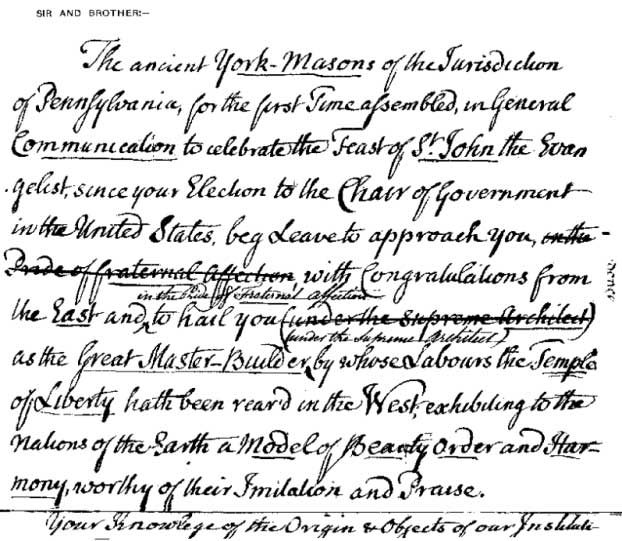 SIR AND BROTHER:—
The ancient York-Masons of the Jurisdiction
of Pennsylvania, for the first Time assembled, in General
Communication to celebrate the Feast of St John the Evan
gelist, since your Election to the Chair of Government
in the United States, beg Leave to approach you, in the
Pride of fraternal Affection with Congratulations from
in the Pride of Fraternal affection
the East and, to hail you (under the Supreme Architect)
(under the Supreme Architect)
as the Great Master-Builder, by whose Labours the Temple
of Liberty hath been rear'd in the West, exhibiting to the
Nations of the Earth a Model of Beauty Order and Har-
mony, worthy of their Imitation and Praise.
Your Knowlege of the Origin & Objects of our Institute